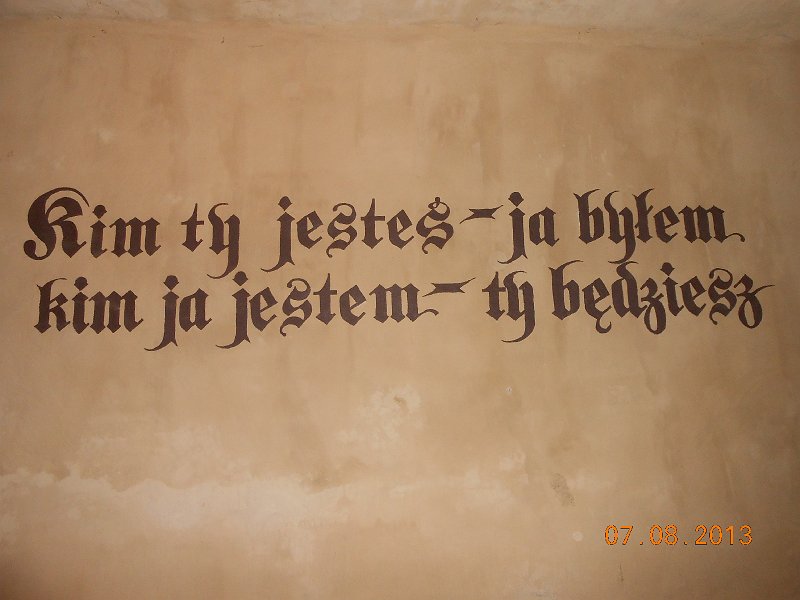 Kim ty jesteś - ja byłem
kim ja jestem - ty będziesz
07.08.2013